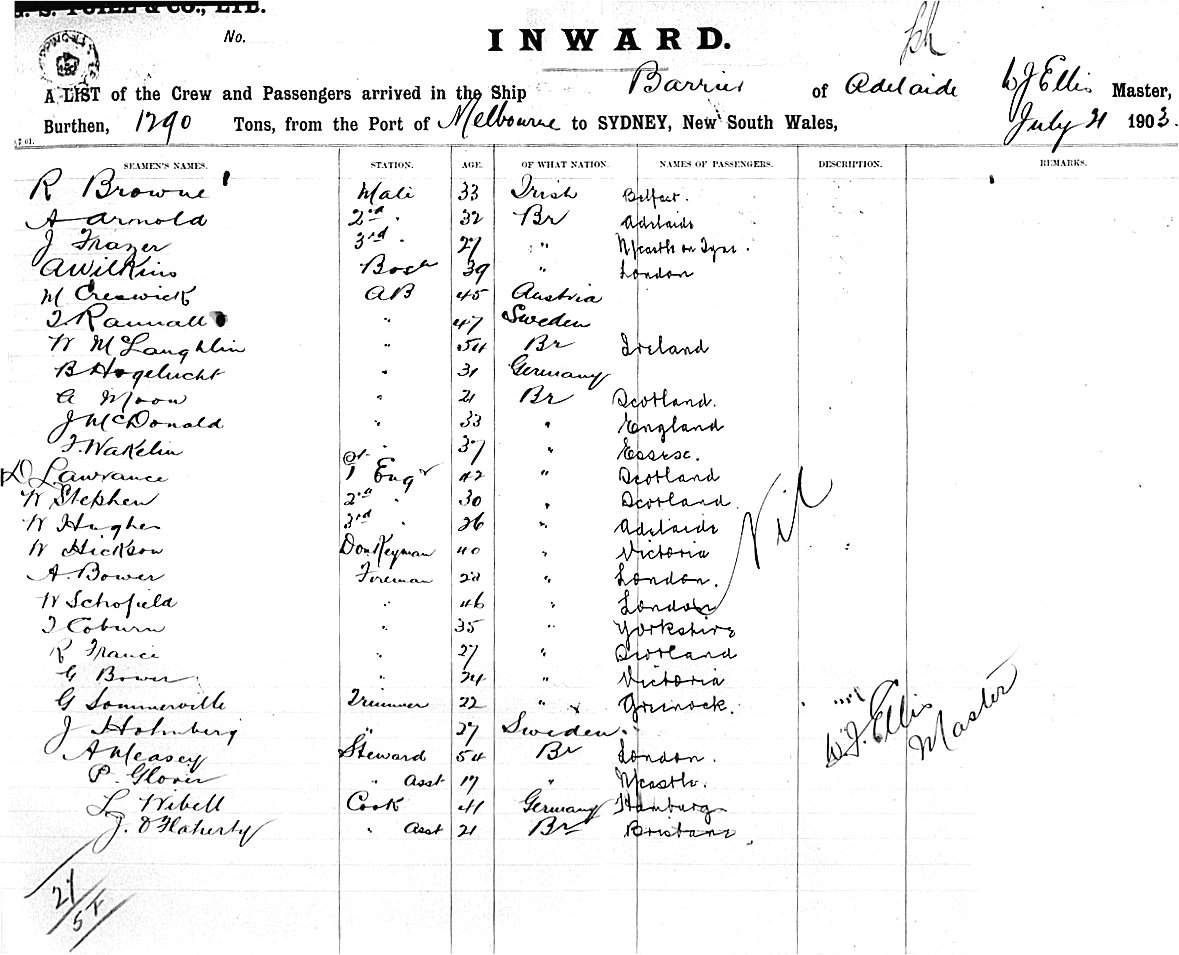 G. S. YUILL & CO., LTD.
No.
INWARD.
A LIST of the Crew and Passengers arrived in the Ship Barrier of Adelaide W J Ellis Master,
Burthen, 1290 Tons, from the Port of Melbourne to SYDNEY, New South Wales, July 21 1903.
SEAMEN'S NAMES. STATION. AGE. OF WHAT NATION. NAMES OF PASSENGERS. DESCRIPTION. REMARKS.
R Browne Mate 33 Irish Belfast.
A Arnold 2nd " 32 Br Adelaide
J Frazer 3rd " 27 " N'castle on Tyne.
A Wilkins Bosn 39 " London
M Creswick AB 45 Austria
T. Rannall " 47 Sweden
W McLaughlin " 54 Br Ireland
B Hogelucht " 31 Germany
A Moon " 21 Br Scotland.
J McDonald " 33 " England
T. Wakelin " 37 " Essex.
D Lawrance 1st Engr 42 " Scotland
W Stephen 2nd " 30 " Scotland
W Hughes 3rd " 26 " Adelaide
W Hickson Donkeyman 40 " Victoria
A. Bower Fireman 28 " London.
W Schofield " 46 " London
T Coburn " 35 " Yorkshire
R France " 27 " Scotland
G Bower " 24 " Victoria
G Sommerville Trimmer 22 " Greenock.
J Holmberg " 27 Sweden.
A Measey Steward 54 Br London.
P. Glover " Asst 17 " N'castle.
L Wibell Cook 41 Germany Hamburg
J. O'Flaherty " Asst 21 Br Brisbane
Nil
W. J. Ellis
Master
27/5+